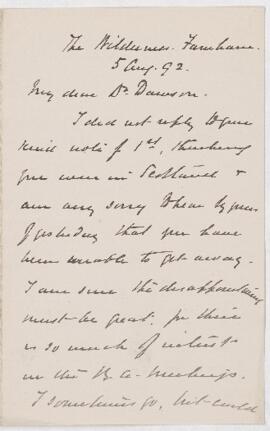 The Wilderness. Farnham.
5 Aug. 92.
My dear Dr. Dawson.
I did not reply to your
kind note of 1st, thinking
you were in Scotland &
am very sorry to hear by yours
of yesterday that you have
been unable to get away.
I am sure the disappointment
must be great, for there
is so much of interest
in the B. A. Meetings.
I sometimes go, but could